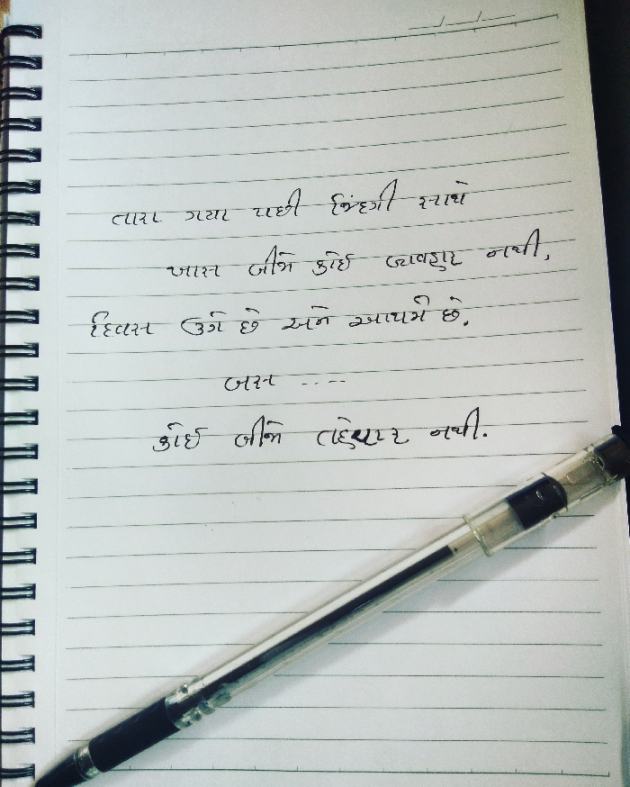 તારા ગયા પછી જિંદગી સાથે
ખાસ બીજો કોઈ વ્યવહાર નથી,
દિવસ ઉગે છે અને આથમે છે.
બસ ....
કોઈ બીજો તહેવાર નથી.